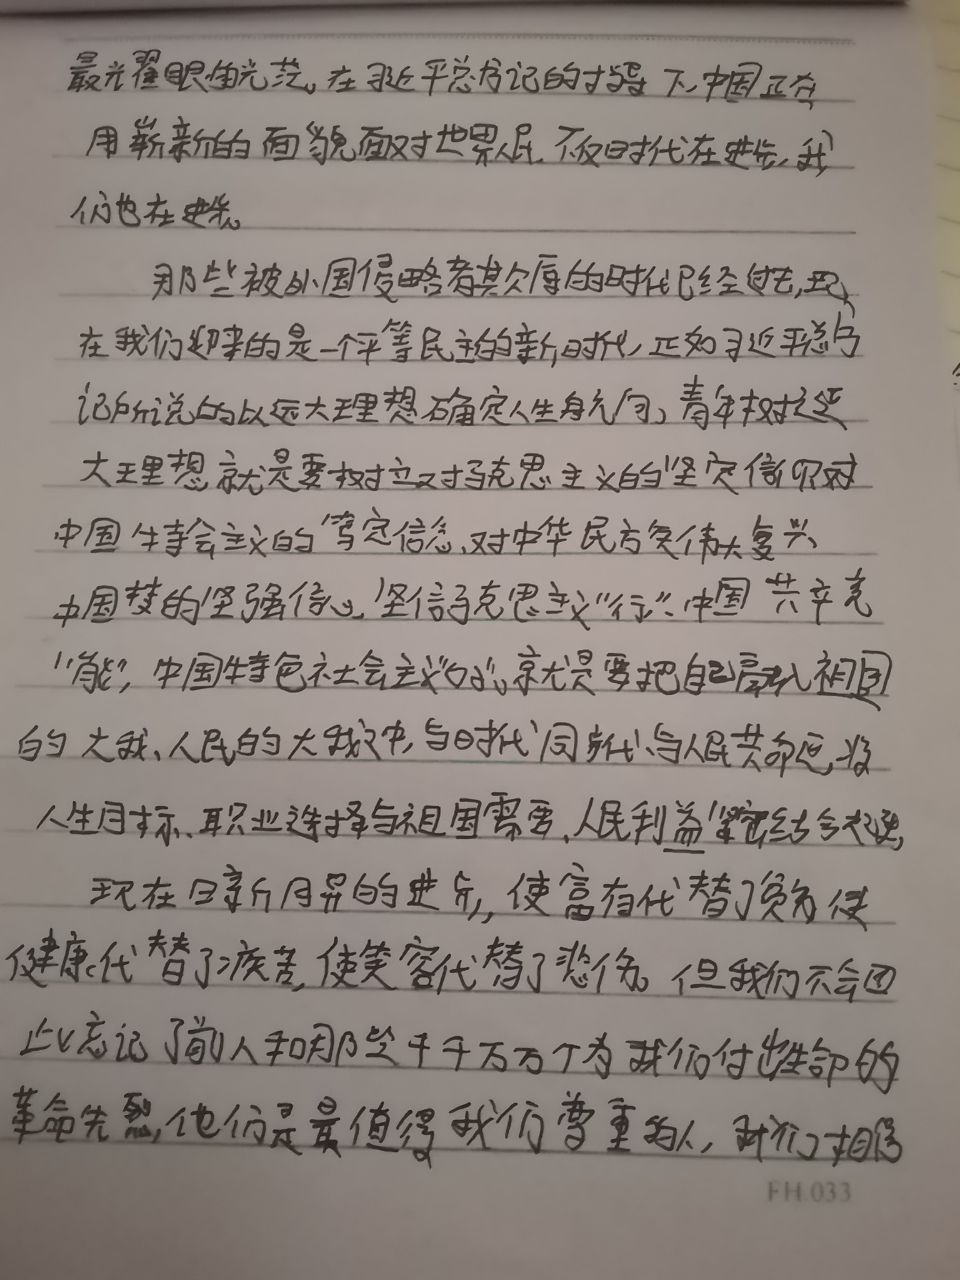 最光耀眼的光芒。在习近平总书记的指导下,中国正在
用崭新的面貌面对世界人民,不仅时代在进步,我
们也在进步。
那些被外国侵略者欺辱的时代已经过去,现
在我们迎来的是一个平等民主的新时代,正如习近平总书
记所说的以远大理想确定人生航向,青年树立远
大理想就是要树立对马克思主义的坚定信仰对
中国特会主义的笃定信念、对中华民族伟大复兴
中国梦的坚强信心,坚信马克思主义“行”、中国共产党
“能”,中国特色社会主义“好”,就是要把自己融入祖国
的大我、人民的大我之中,与时代同步伐、与人民共命运,将
人生目标、职业选择与祖国需要、人民利益紧密结合起来,
现在日新月异的进步,使富有代替了贫穷使
健康代替了疾苦,使笑容代替了悲伤。但我们不会因
此忘记了前人和那些千千万万个为我们付出生命的
革命先烈,他们是最值得我们尊重的人,我们相信
FH.033